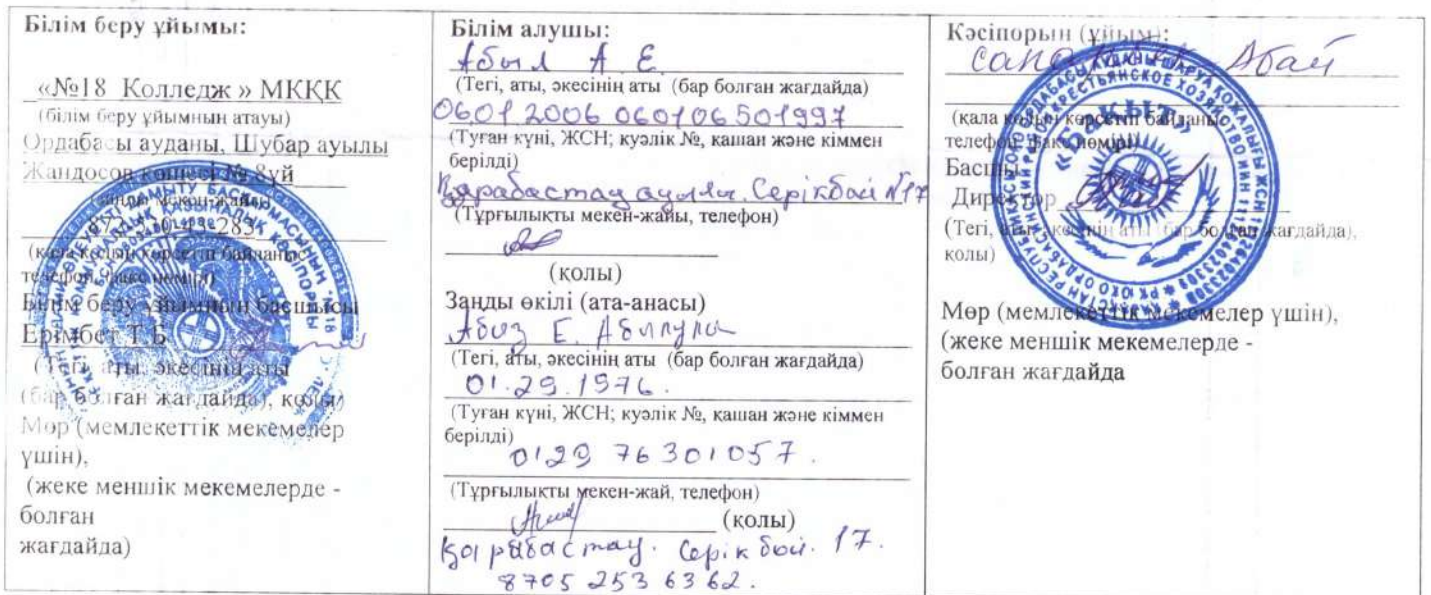 Білім беру ұйымы:
«№18 Колледж » МКҚК
(білім беру ұйымнын атауы)
Ордабасы ауданы, Шубар ауылы
Жандосов көшесі № 8үй
(заңды мекен-жайы)
(қала кодын көрсетіп байланыс
телефон, факс немірі)
Білім беру ұйымның басшысы
Ерімбет Т.Б
(Тегі, аты, әкесінің аты
(бар болған жағдайда), қолы)
Мөр (мемлекеттік мекемелер
үшін),
(жеке меншік мекемелерде -
болған
жағдайда)
Білім алушы:
Абыл А. Е.
(Тегі, аты, әкесінің аты (бар болған жағдайда)
06.01.2006 060106501997
(Туған күні, ЖСН; куәлік №, қашан және кіммен
берілді)
Қарабастау ауылы. Серікбай №17
(Тұрғылықты мекен-жайы, телефон)
(қолы)
Заңды өкілі (ата-анасы)
Е.
(Тегі, аты, әкесінің аты (бар болған жағдайда)
01.29.1976.
(Туған күні, ЖСН; куәлік №, қашан және кіммен
берілді)
0129 76301057.
(Тұрғылықты мекен-жай, телефон)
(қолы)
Қарабастау. Серікбай. 17.
8705 253 6362.
Кәсіпорын (ұйым):
Абай
(қала кодын көрсетіп байланыс
телефон, факс немірі)
Басшы
Директор
(Тегі, аты, әкесінің аты (бар болған жағдайда),
қолы)
«Бақыт»
Мөр (мемлекеттік мекемелер үшін),
(жеке меншік мекемелерде -
болған жағдайда